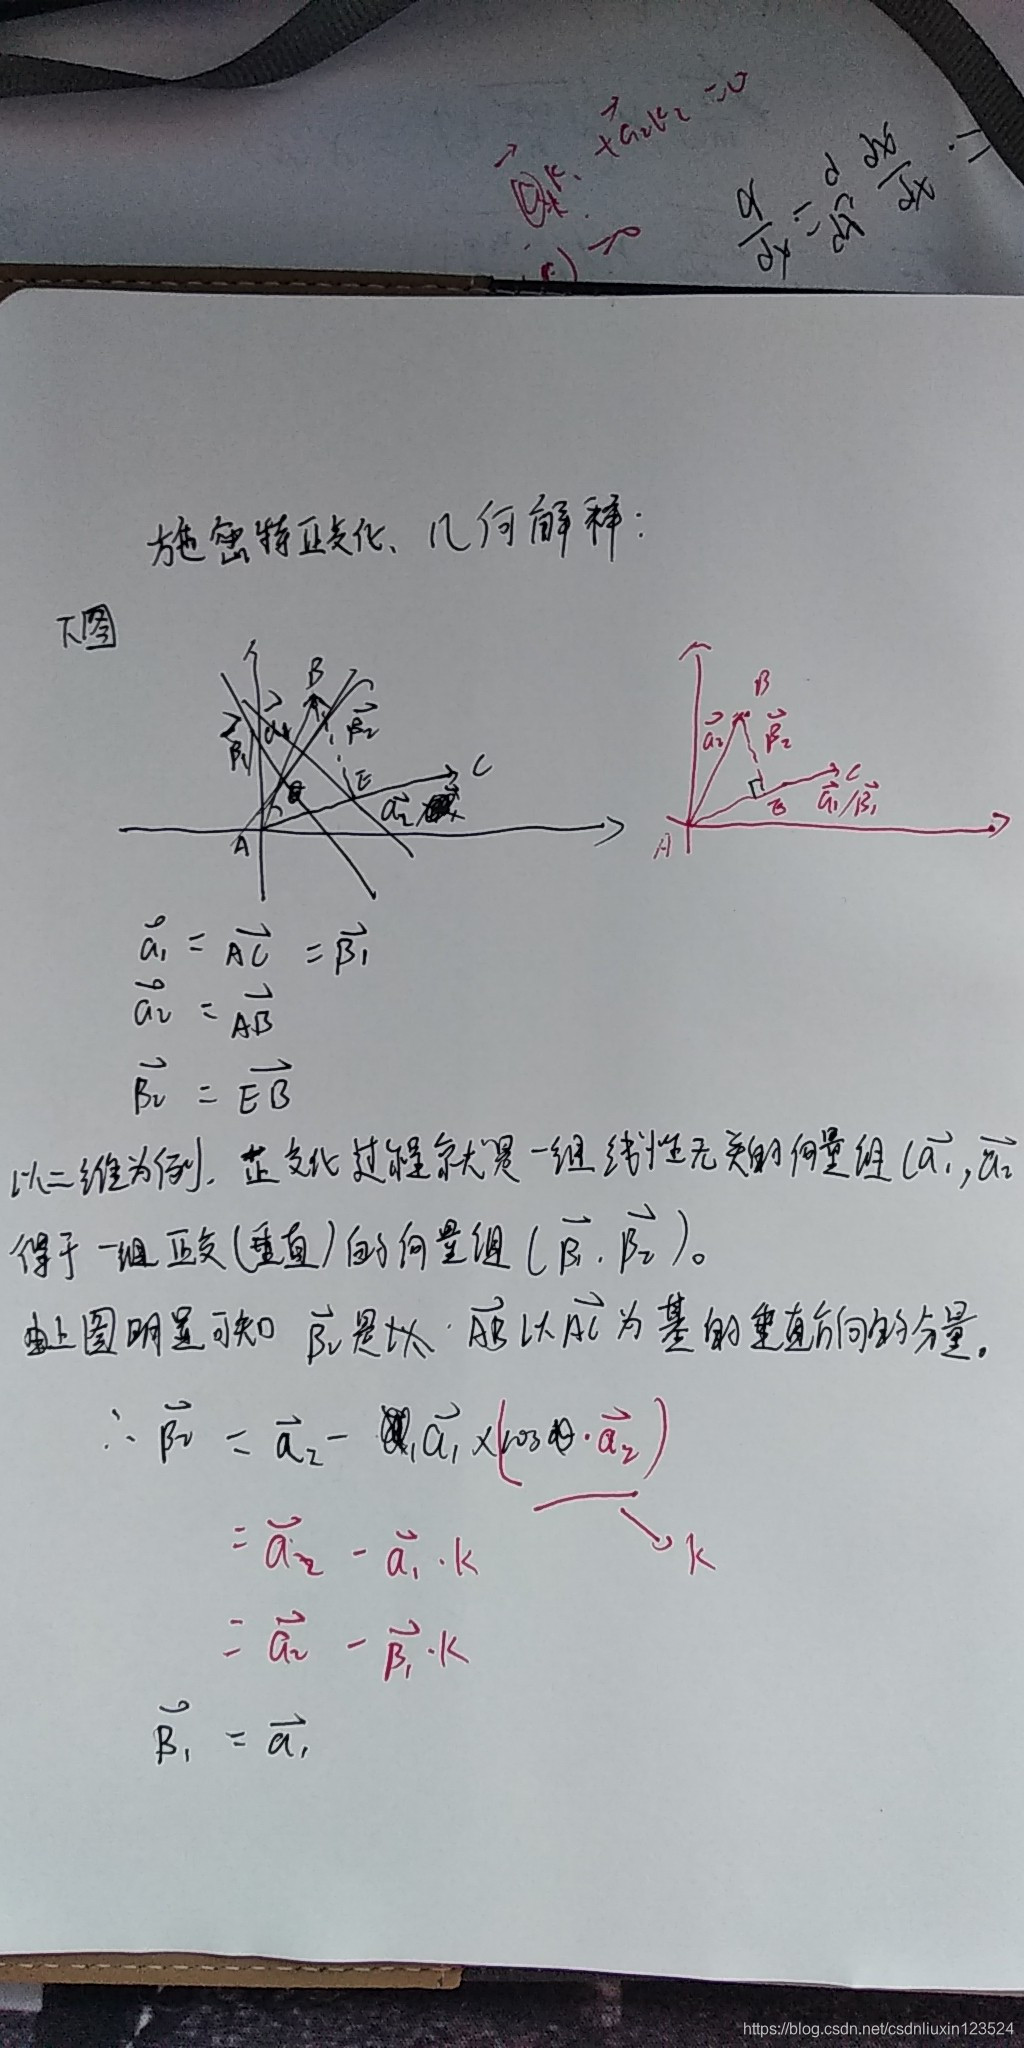 施密特正交化、几何解释:
下图
B
β₂
E
C
A
B
a₂
β₂
C
E
a₁/β₁
A
a₁ = AC = β₁
a₂ = AB
β₂ = EB
以二维为例, 正交化过程就是一组线性无关的向量组(a₁, a₂
得于一组正交(垂直)的向量组(β₁, β₂)。
由上图明显可知 β₂是以 AB以AC为基的垂直方向的分量。
∴ β₂ = a₂ - a₁ × (cosθ · a₂)
= a₂ - a₁ · k
k
= a₂ - β₁ · k
β₁ = a₁
https://blog.csdn.net/csdnliuxin123524